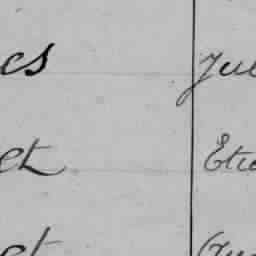 es Jul
et Eti
et